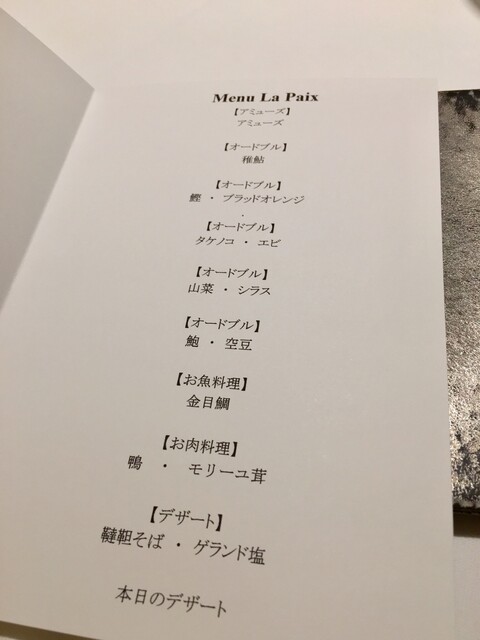 Menu La Paix
【アミューズ】
アミューズ
【オードブル】
稚鮎
【オードブル】
鰹 ・ ブラッドオレンジ
【オードブル】
タケノコ ・ エビ
【オードブル】
山菜 ・ シラス
【オードブル】
鮑 ・ 空豆
【お魚料理】
金目鯛
【お肉料理】
鴨 ・ モリーユ茸
【デザート】
韃靼そば ・ ゲランド塩
本日のデザート